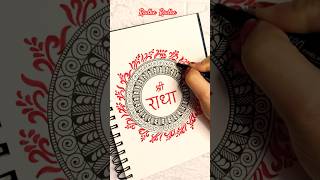 Radhe Radhe
श्री
राधा